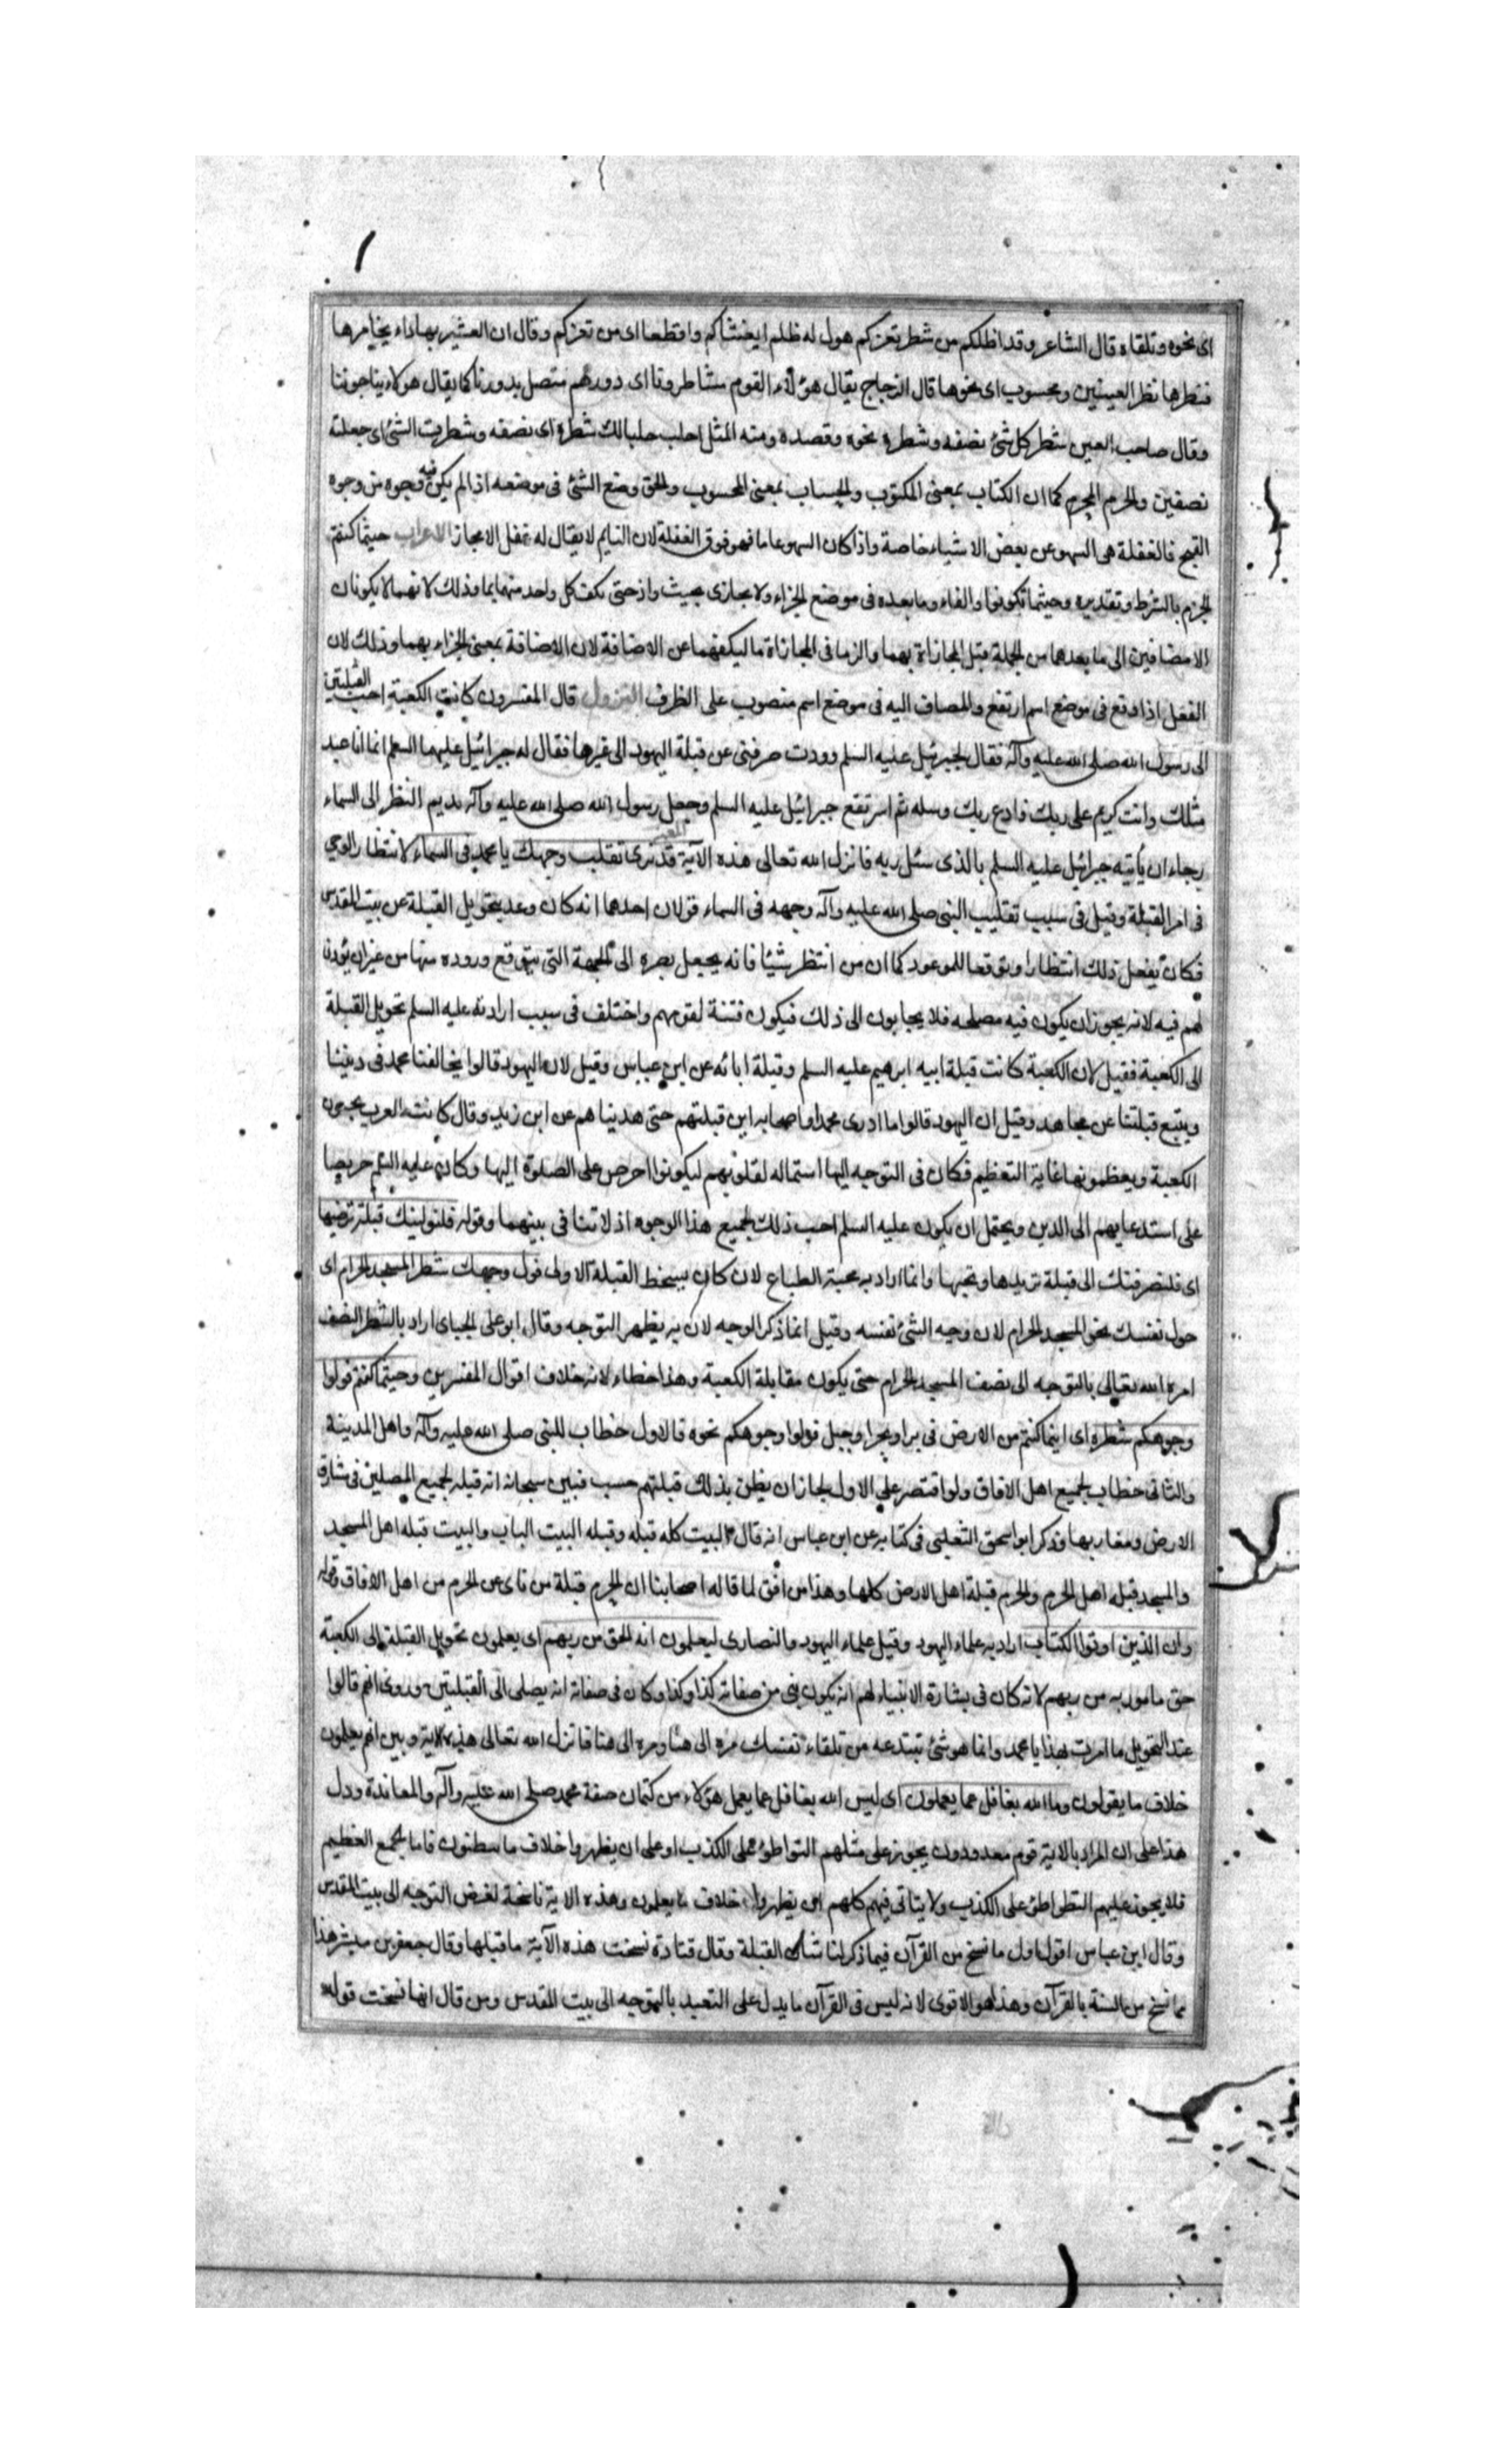 اى نحوه وتلقاه قال الشاعر وقد اظلكم من شطر ثغركم هول له ظلم ايغشاكم واقطعا اى من ثغركم وقال ان العشير بها داء يخامرها
فشطرها نظر العينين ومحسوب اى نحوها قال الزجاج يقال هؤلاء القوم مشاطرونا اى دورهم متصل بدورنا كما يقال هولاء يناحوننا
وقال صاحب العين شطر كل شئ نصفه وشطره نحوه وقصده ومنه المثل احلب حلبا لك شطره اى نصفه وشطرت الشئ اى جعلته
نصفين والحرم المحرم كما ان الكتاب بمعنى المكتوب والحساب بمعنى المحسوب والحق وضع الشئ فى موضعه اذا لم يكن فيه وجوه من وجوه
القبح فالغفلة هى السهو عن بعض الاشياء خاصة واذا كان السهو عاما فهو فوق الغفلة لان النايم لا يقال له غفل الا مجازا الاعراب حيثما كنتم
الجزم بالشرط وتقديره وحيثما تكونوا والفاء وما بعده فى موضع الجزاء ولا يجازى بحيث واذ حتى يكف كل واحد منهما بما وذلك لانهما لا يكونان
الا مضافين الى ما بعدهما من الجملة قبل المجازاة بهما والزما فى المجازاة ما ليكفهما عن الاضافة لان الاضافة بمعنى الجزاء بهما وذلك لان
الفعل اذا وقع فى موضع اسم ارتفع والمضاف اليه فى موضع اسم منصوب على الظرف النزول قال المفسرون كانت الكعبة احب القبلتين
الى رسول الله صلى الله عليه وآله فقال لجبرئيل عليه السلم وودت صرفنى عن قبلة اليهود الى غيرها فقال له جبرائيل عليهما السلم انما انا عبد
مثلك وانت كريم على ربك فادع ربك وسله ثم ارتفع جبرائيل عليه السلم وجعل رسول الله صلى الله عليه وآله يديم النظر الى السماء
رجاء ان يأتيه جبرائيل عليه السلم بالذى سئل ربه فانزل الله تعالى هذه الآية قد نرى تقلب وجهك يا محمد فى السماء لانتظار الوحي
فى امر القبلة وقيل فى سبب تقليب النبى صلى الله عليه وآله وجهه فى السماء قولان احدهما انه كان وعد بتحويل القبلة عن بيت المقدس
فكان يفعل ذلك انتظارا وتوقعا للموعود كما ان من انتظر شيئا فانه يجعل بصره الى الجهة التى يتوقع وروده منها من غير ان يؤذن
لهم فيه لانه يجوز ان يكون فيه مصلحه فلا يجابون الى ذلك فيكون فتنة لقومهم واختلف فى سبب ارادته عليه السلم تحويل القبلة
الى الكعبة فقيل لان الكعبة كانت قبلة ابيه ابرهيم عليه السلم وقبلة ابائه عن ابن عباس وقيل لان اليهود قالوا يخالفنا محمد فى ديننا
ويتبع قبلتنا عن مجاهد وقيل ان اليهود قالوا ما ادرى محمد واصحابه اين قبلتهم حتى هديناهم عن ابن زيد وقال كانت العرب يحبون
الكعبة ويعظمونها غاية التعظيم فكان فى التوجه اليها استماله لقلوبهم ليكونوا احرص على الصلوة اليها وكان عليه السلم حريصا
على استدعايهم الى الدين ويحتمل ان يكون عليه السلم احب ذلك لجميع هذا الوجوه اذ لا تنافى بينهما وقوله فلنولينك قبلة ترضيها
اى فلنصرفنك الى قبلة تريدها وتحبها وانما اراد به محبة الطباع لان كان يسخط القبلة الاولى فول وجهك شطر المسجد الحرام اى
حول نفسك نحو المسجد الحرام لان وجه الشئ نفسه وقيل انما ذكر الوجه لان به يظهر التوجه وقال ابو على الجباى اراد بالشطر النصف
امره الله تعالى بالتوجه الى نصف المسجد الحرام حتى يكون مقابلة الكعبة وهذا خطاء لانه خلاف اقوال المفسرين وحيثما كنتم فولوا
وجوهكم شطره اى اينما كنتم من الارض فى بر او بحر او جبل فولوا وجوهكم نحوه فالاول خطاب للنبى صلى الله عليه وآله واهل المدينة
والثانى خطاب لجميع اهل الافاق ولو اقتصر على الاول لجاز ان يظن بذلك قبلتهم حسب فبين سبحانه انه قبله لجميع المصلين فى مشارق
الارض ومغاربها وذكر ابو اسحق الثعلبى فى كتابه عن ابن عباس انه قال البيت كله قبله وقبله البيت الباب والبيت قبله اهل المسجد
والمسجد قبله اهل الحرم والحرم قبلة اهل الارض كلها وهذا موافق لما قاله اصحابنا ان الحرم قبلة من نأى عن الحرم من اهل الافاق وقوله
وان الذين اوتوا الكتاب اراد به علماء اليهود وقيل علماء اليهود والنصارى ليعلمون انه الحق من ربهم اى يعلمون تحويل القبلة الى الكعبة
حق مامور به من ربهم لانه كان فى بشارة الانبياء لهم انه يكون نبى من صفاته كذا وكذا وكان فى صفاته انه يصلى الى القبلتين وروى انهم قالوا
عند التحويل ما امرت بهذا يا محمد وانما هو شئ تبتدعه من تلقاء نفسك مره الى هنا ومره الى هنا فانزل الله تعالى هذه الاية وبين انهم يعلمون
خلاف ما يقولون وما الله بغافل عما يعملون اى ليس الله بغافل عما يعمل هؤلاء من كتمان صفة محمد صلى الله عليه وآله والمعاندة ودل
هذا على ان المراد بالاية قوم معدودون يجوز على مثلهم التواطؤ على الكذب او على ان يظهروا خلاف ما يبطنون فاما الجمع العظيم
فلا يجوز عليهم التواطئ على الكذب ولا يتاتى فيهم كلهم ان يظهروا خلاف ما يعلمون وهذه الاية ناسخة لفرض التوجه الى بيت المقدس
وقال ابن عباس اقول اول ما نسخ من القرآن فيما ذكر لنا شأن القبلة وقال قتادة نسخت هذه الآية ما قبلها وقال جعفر بن مبشر هذا
مما نسخ من السنة بالقرآن وهذا هو الاقوى لانه ليس فى القرآن ما يدل على التعبد بالتوجه الى بيت المقدس ومن قال انها نسخت قوله